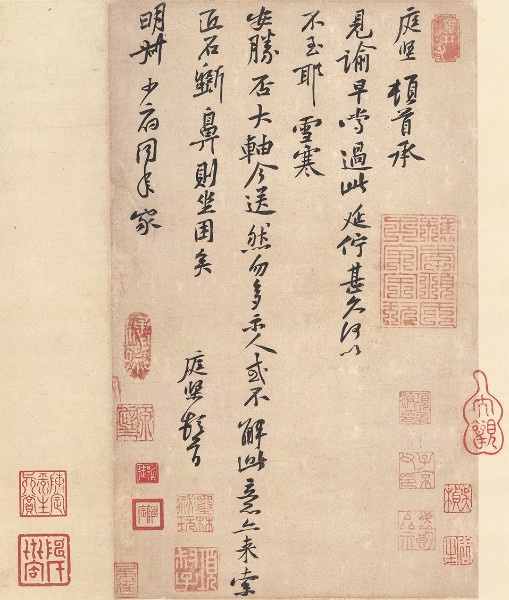 庭堅頓首承
見諭早嘗過此延佇甚久何以
不至耶雪寒
安勝否大軸今送然勿多示人或不解此意亦來索
匠石斲鼻則坐困矣
庭堅頓首
明叔少府同年家
大觀